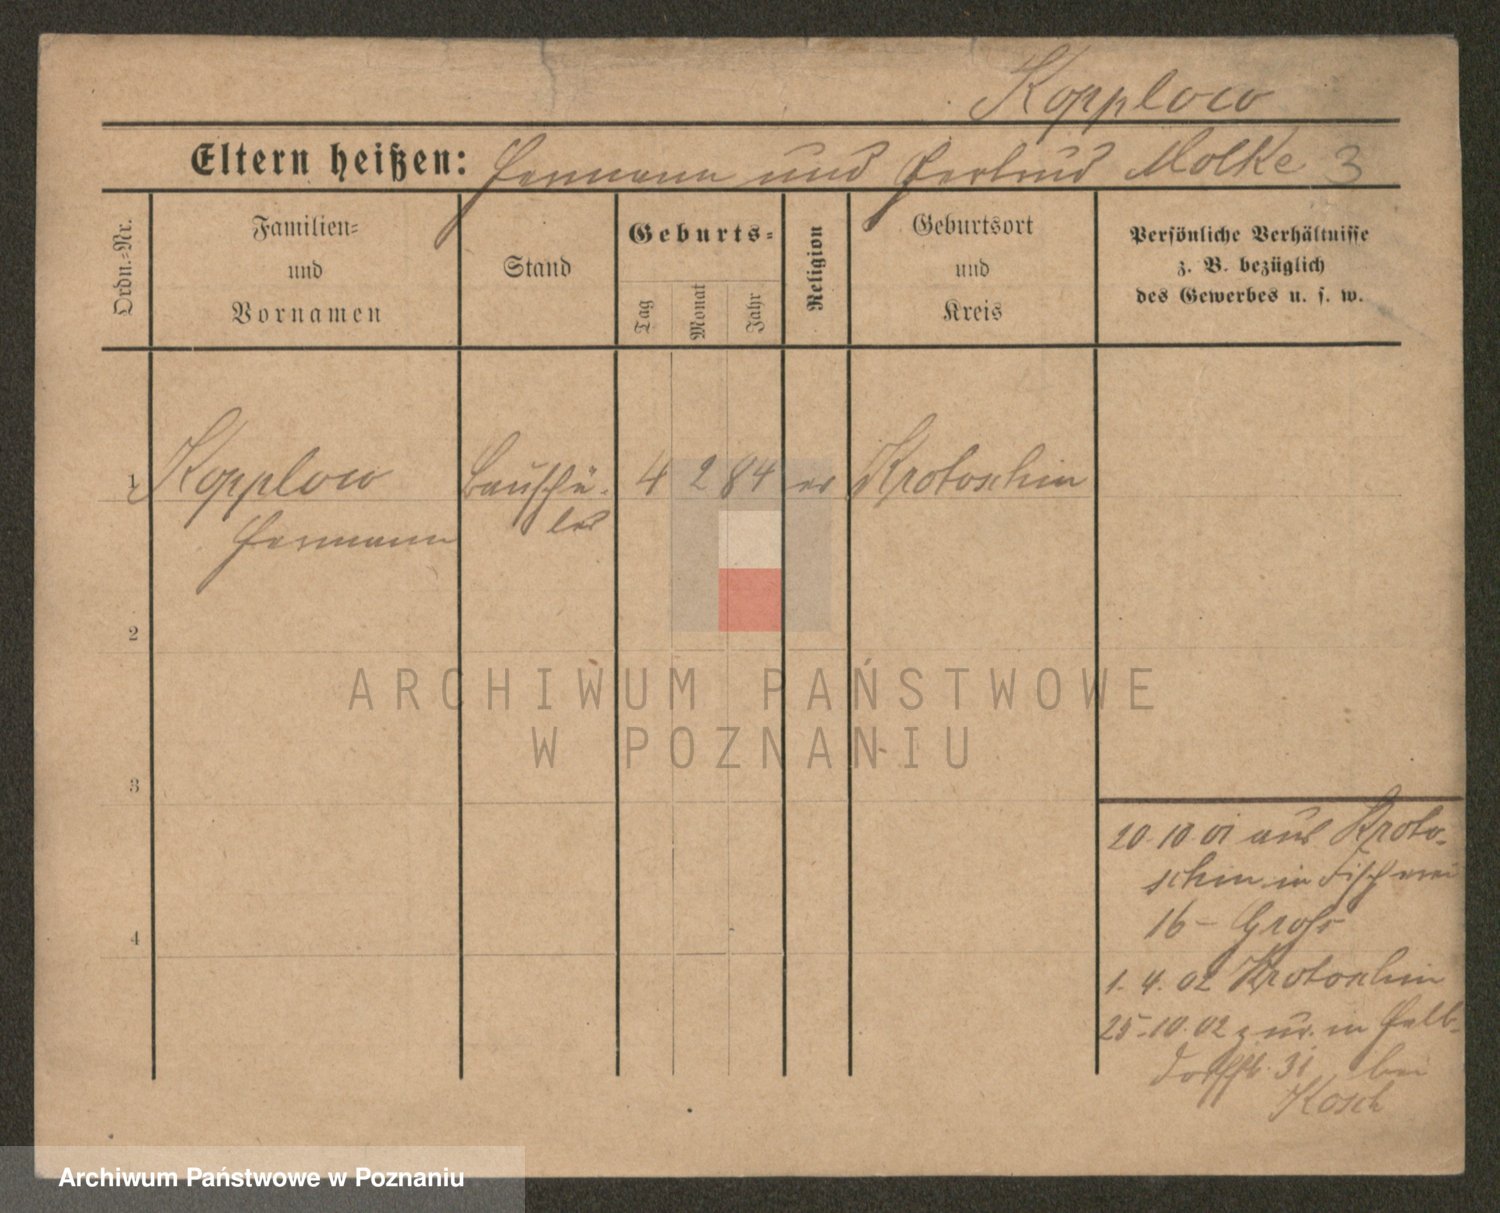 Kopplow
Eltern heißen: Hermann und Gertrud Molke 3
Ordn.-Nr.
Familien-
und
Vornamen
Stand
Geburts-
Tag
Monat
Jahr
Religion
Geburtsort
und
Kreis
Persönliche Verhältnisse
z. B. bezüglich
des Gewerbes u. s. w.
1 Kopplow Bauschü- 4 2 84 ev Krotoschin
Hermann ler
2
3
4
20.10.01 aus Kroto-
schin in Fischerei
16 - Groß
1. 4. 02 Krotoschin
25.10.02 zur. in Halb-
dorfstr. 31 bei
Kosch
ARCHIWUM PAŃSTWOWE
W POZNANIU
Archiwum Państwowe w Poznaniu